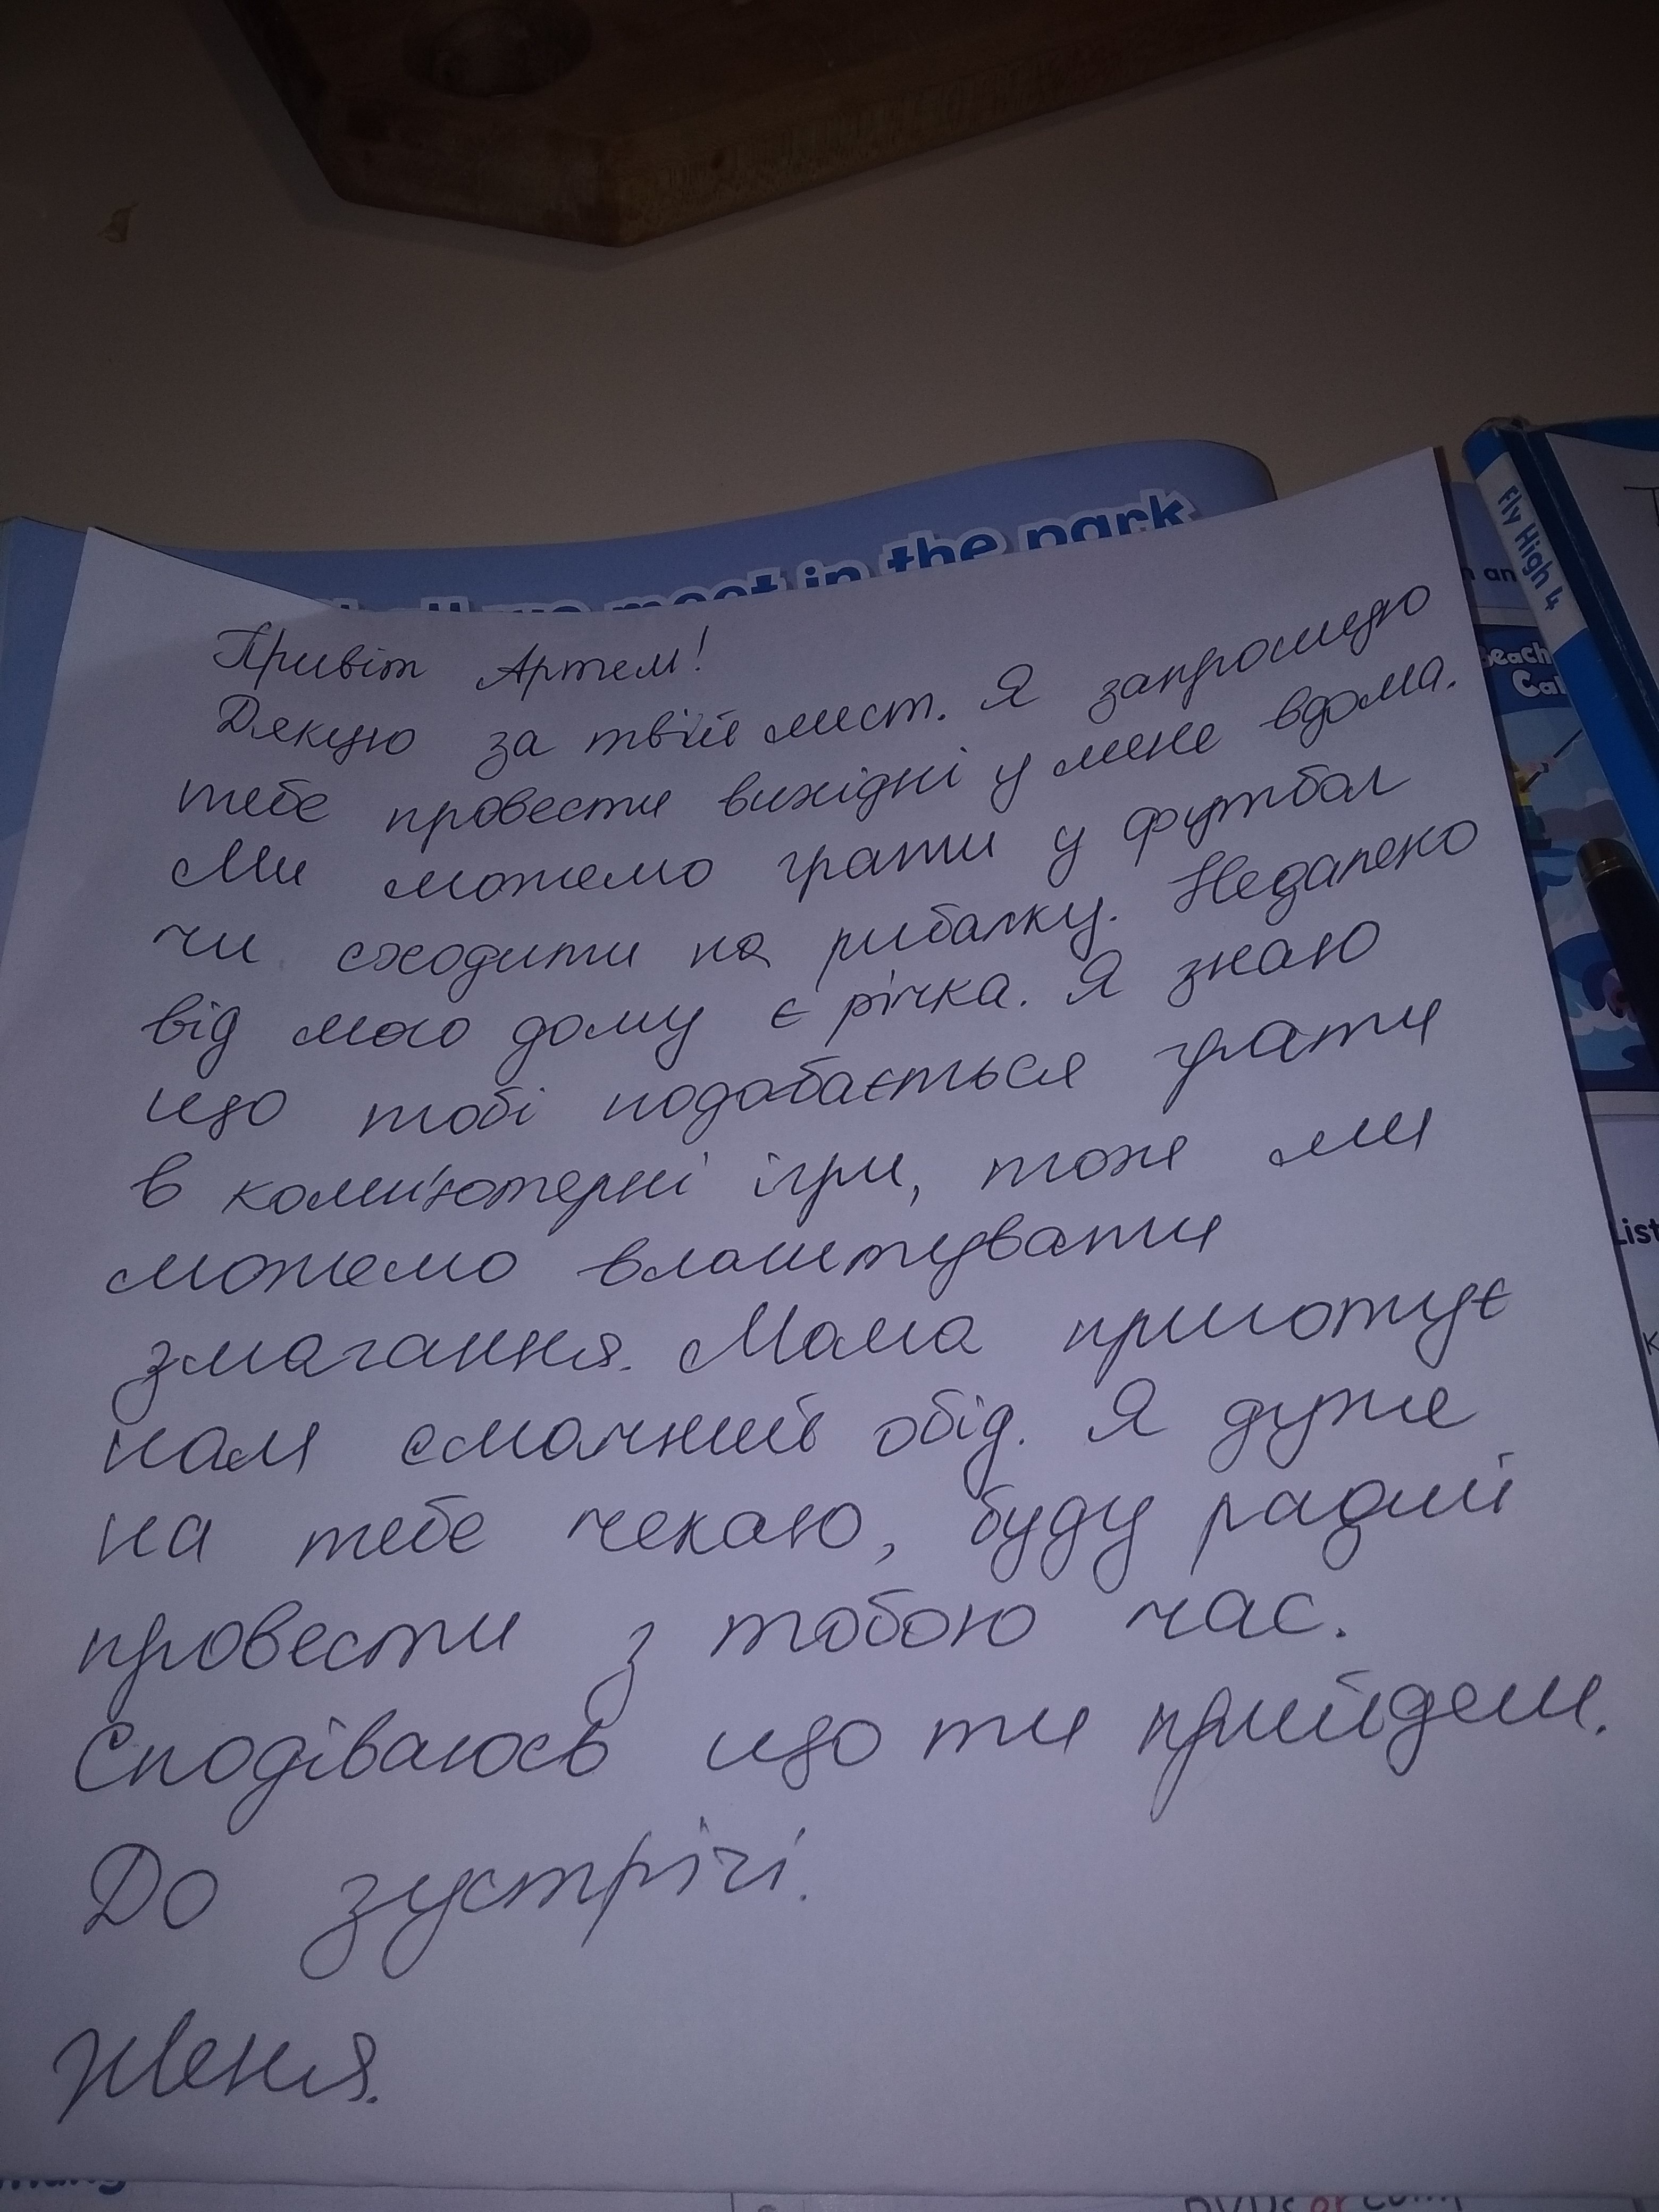 meet in the park
Fly High 4
Привіт Артем!
Дякую за твій лист. Я запрошую
тебе провести вихідні у мене вдома.
Ми можемо грати у футбол
чи сходити на рибалку. Недалеко
від мого дому є річка. Я знаю
що тобі подобається грати
в комп'ютерні ігри, тоже ми
можемо влаштувати
змагання. Мама приготує
нам смачний обід. Я дуже
на тебе чекаю, буду радий
провести з тобою час.
Сподіваюсь що ти прийдеш.
До зустрічі.
Женя.
DVDs or